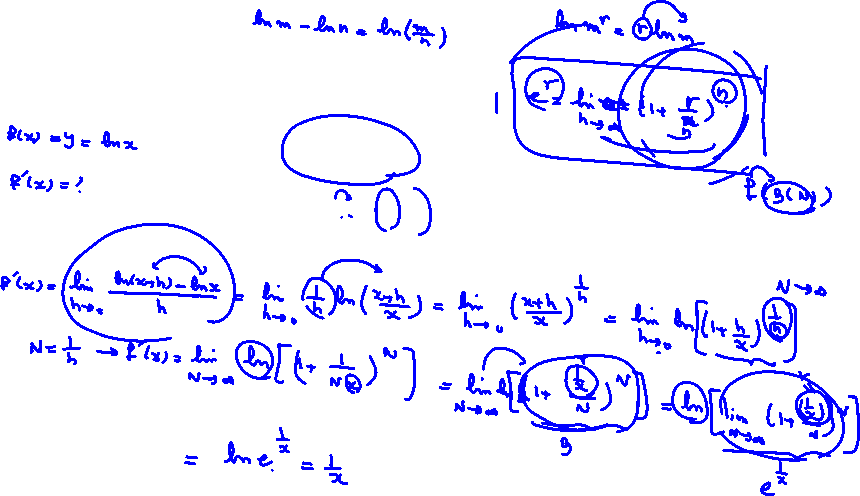 ln m − ln n = ln(m/n)
ln m^r = r ln m
e^r = lim n→∞ (1 + r/n)^n
f(x) = y = ln x
f'(x) = ?
f(g(N))
f'(x) = lim h→0 (ln(x+h) − ln x)/h = lim h→0 (1/h) ln((x+h)/x) = lim h→0 ((x+h)/x)^(1/h) = lim h→0 ln[(1 + h/x)^(1/h)]
N→∞
N = 1/h → f'(x) = lim N→∞ ln[(1 + 1/(Nx))^N] = lim N→∞ ln[(1 + (1/x)/N)^N] = ln[lim N→∞ (1 + (1/x)/N)^N]
g
e^(1/x)
= ln e^(1/x) = 1/x